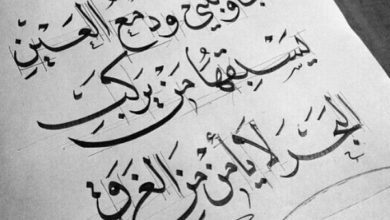 ودمع العينِ
يَسْبِقُهَا مَن يركبِ
البحرَ لَا يأمنْ منَ الغرقِ